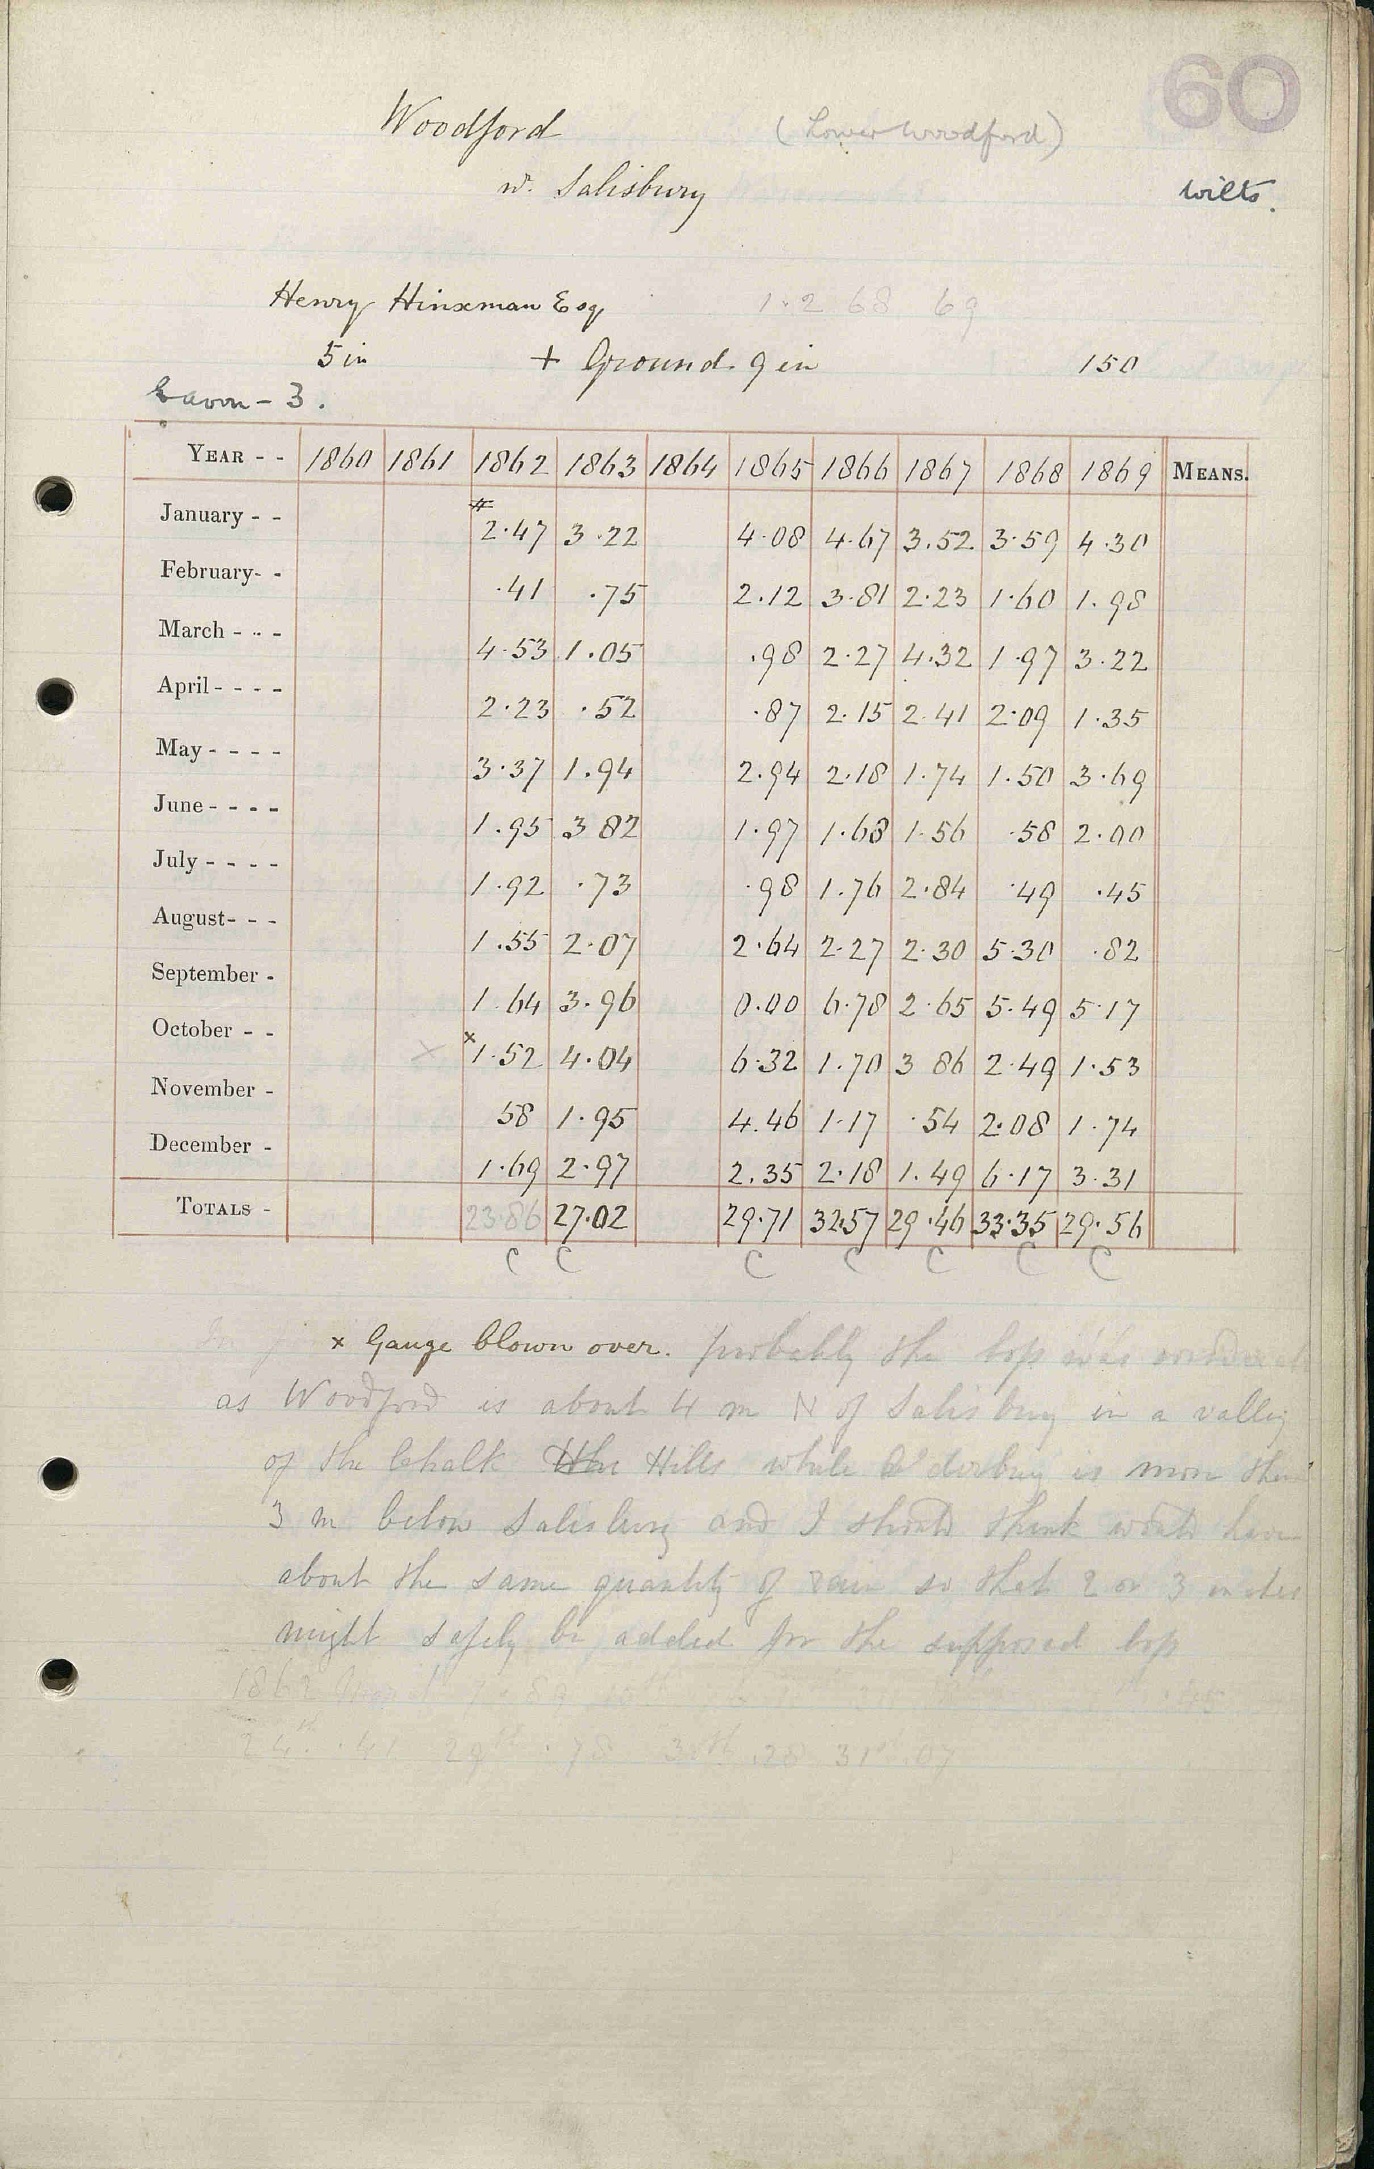 60
Woodford (Lower Woodford)
nr. Salisbury Wilts.
Henry Hinxman Esq 1.2 68 69
5 in + Ground 9 in 150
Eavon - 3.
YEAR - - 1860 1861 1862 1863 1864 1865 1866 1867 1868 1869 MEANS.
January - - # 2.47 3.22 4.08 4.67 3.52 3.59 4.30
February- - .41 .75 2.12 3.81 2.23 1.60 1.98
March - - - 4.53 1.05 .98 2.27 4.32 1.97 3.22
April - - - - 2.23 .52 .87 2.15 2.41 2.09 1.35
May - - - - 3.37 1.94 2.94 2.18 1.74 1.50 3.69
June - - - - 1.95 3 82 1.97 1.63 1.56 .58 2.00
July - - - - 1.92 .73 .98 1.76 2.84 .49 .45
August- - - 1.55 2.07 2.64 2.27 2.30 5.30 .82
September - 1 64 3.96 0.00 6.78 2.65 5.49 5.17
October - - x x 1.52 4.04 6.32 1.70 3 86 2.49 1.53
November - 58 1.95 4.46 1.17 .54 2.08 1.74
December - 1.69 2.97 2.35 2.18 1.49 6.17 3.31
TOTALS - 23.86 27.02 29.71 32.57 29.46 33.35 29.56
C C C C C C C
x Gauge blown over. probably the loss was
as Woodford is about 4 m N of Salisbury in a valley
of the Chalk Hills while is more than
3 m below Salisbury and I should think would have
about the same quantity of rain so that 2 or 3 inches
might safely be added for the supposed loss
1862
24th .41 29th .78 30th .28 31st .07